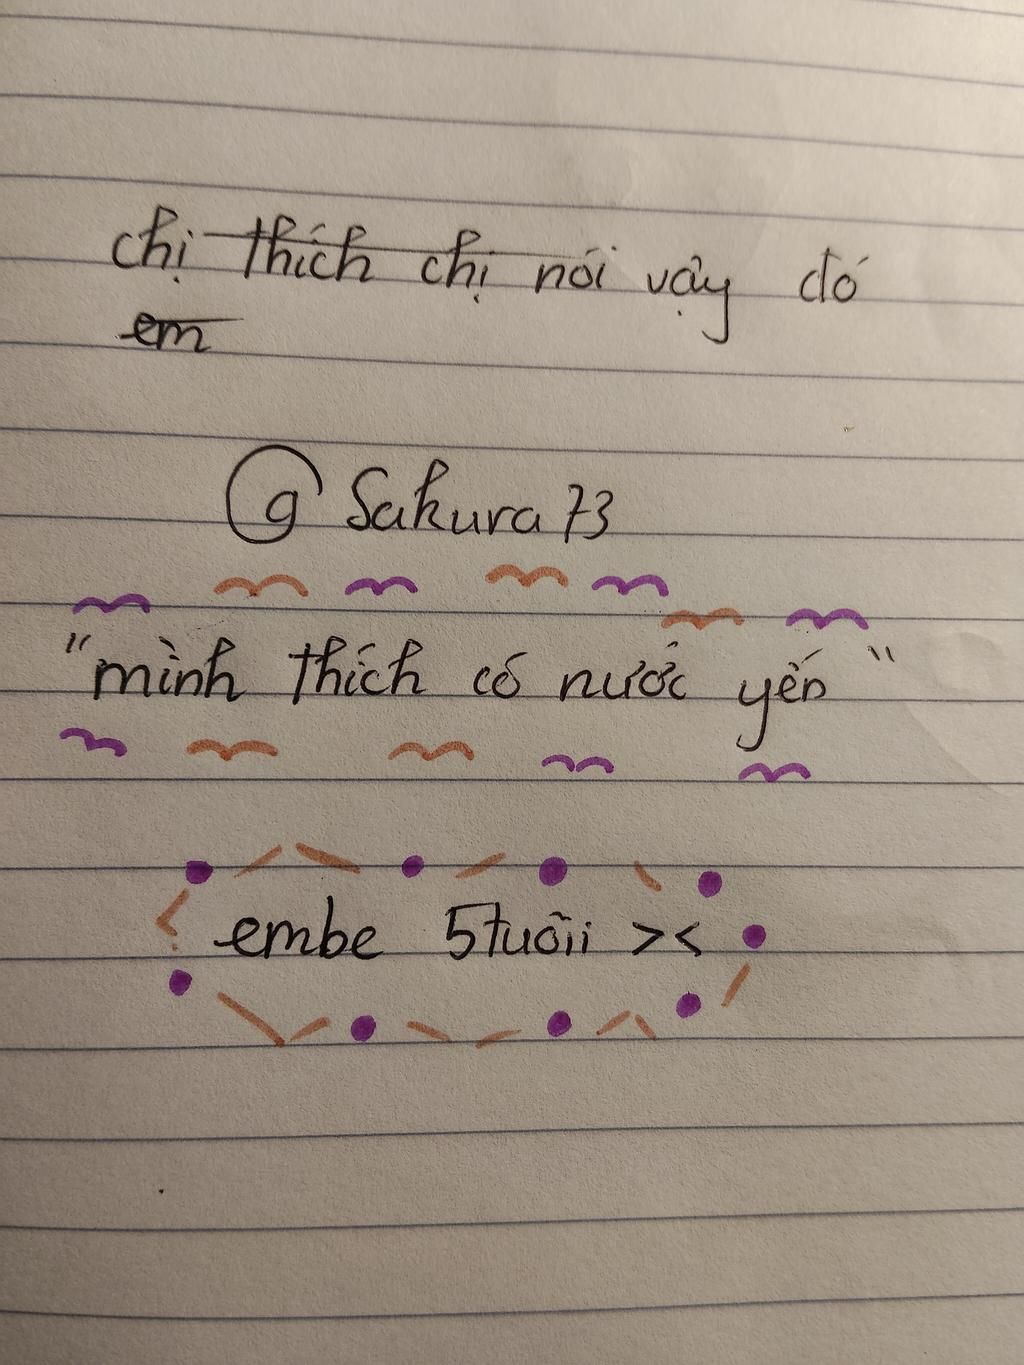 chị thích chị nói vậy đó
em
@Sakura73
"mình thích có nước yến"
embe 5tuôii ><